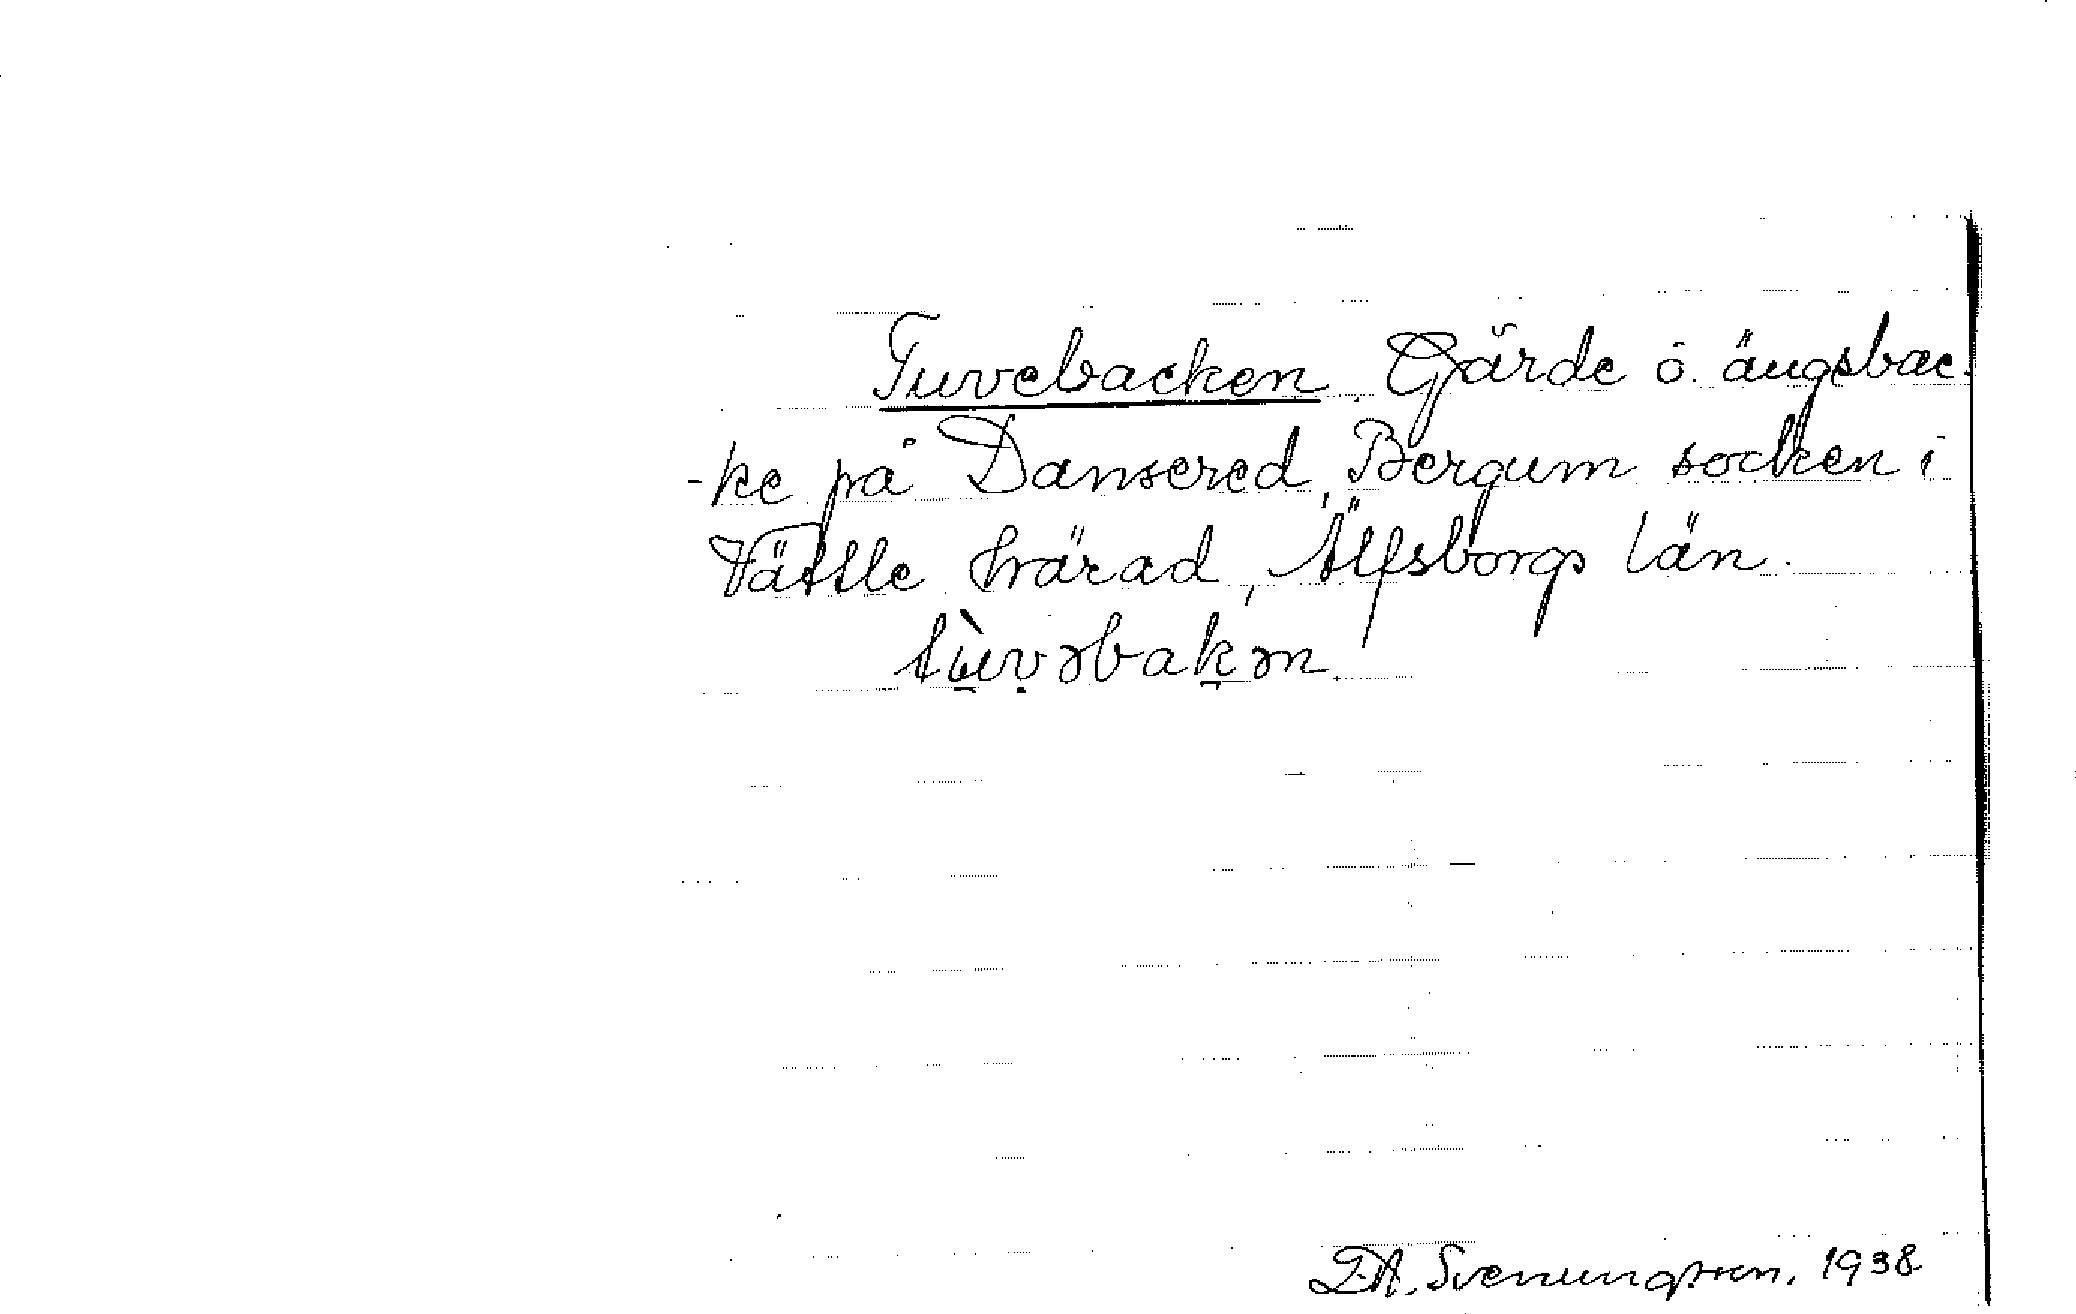 Tuvebacken. Gärde o. ängsbac-
-ke på Dansered, Bergum socken i
Vättle härad, Älfsborgs län.
tùvəbakən.
D.A. Svenungsson. 1938